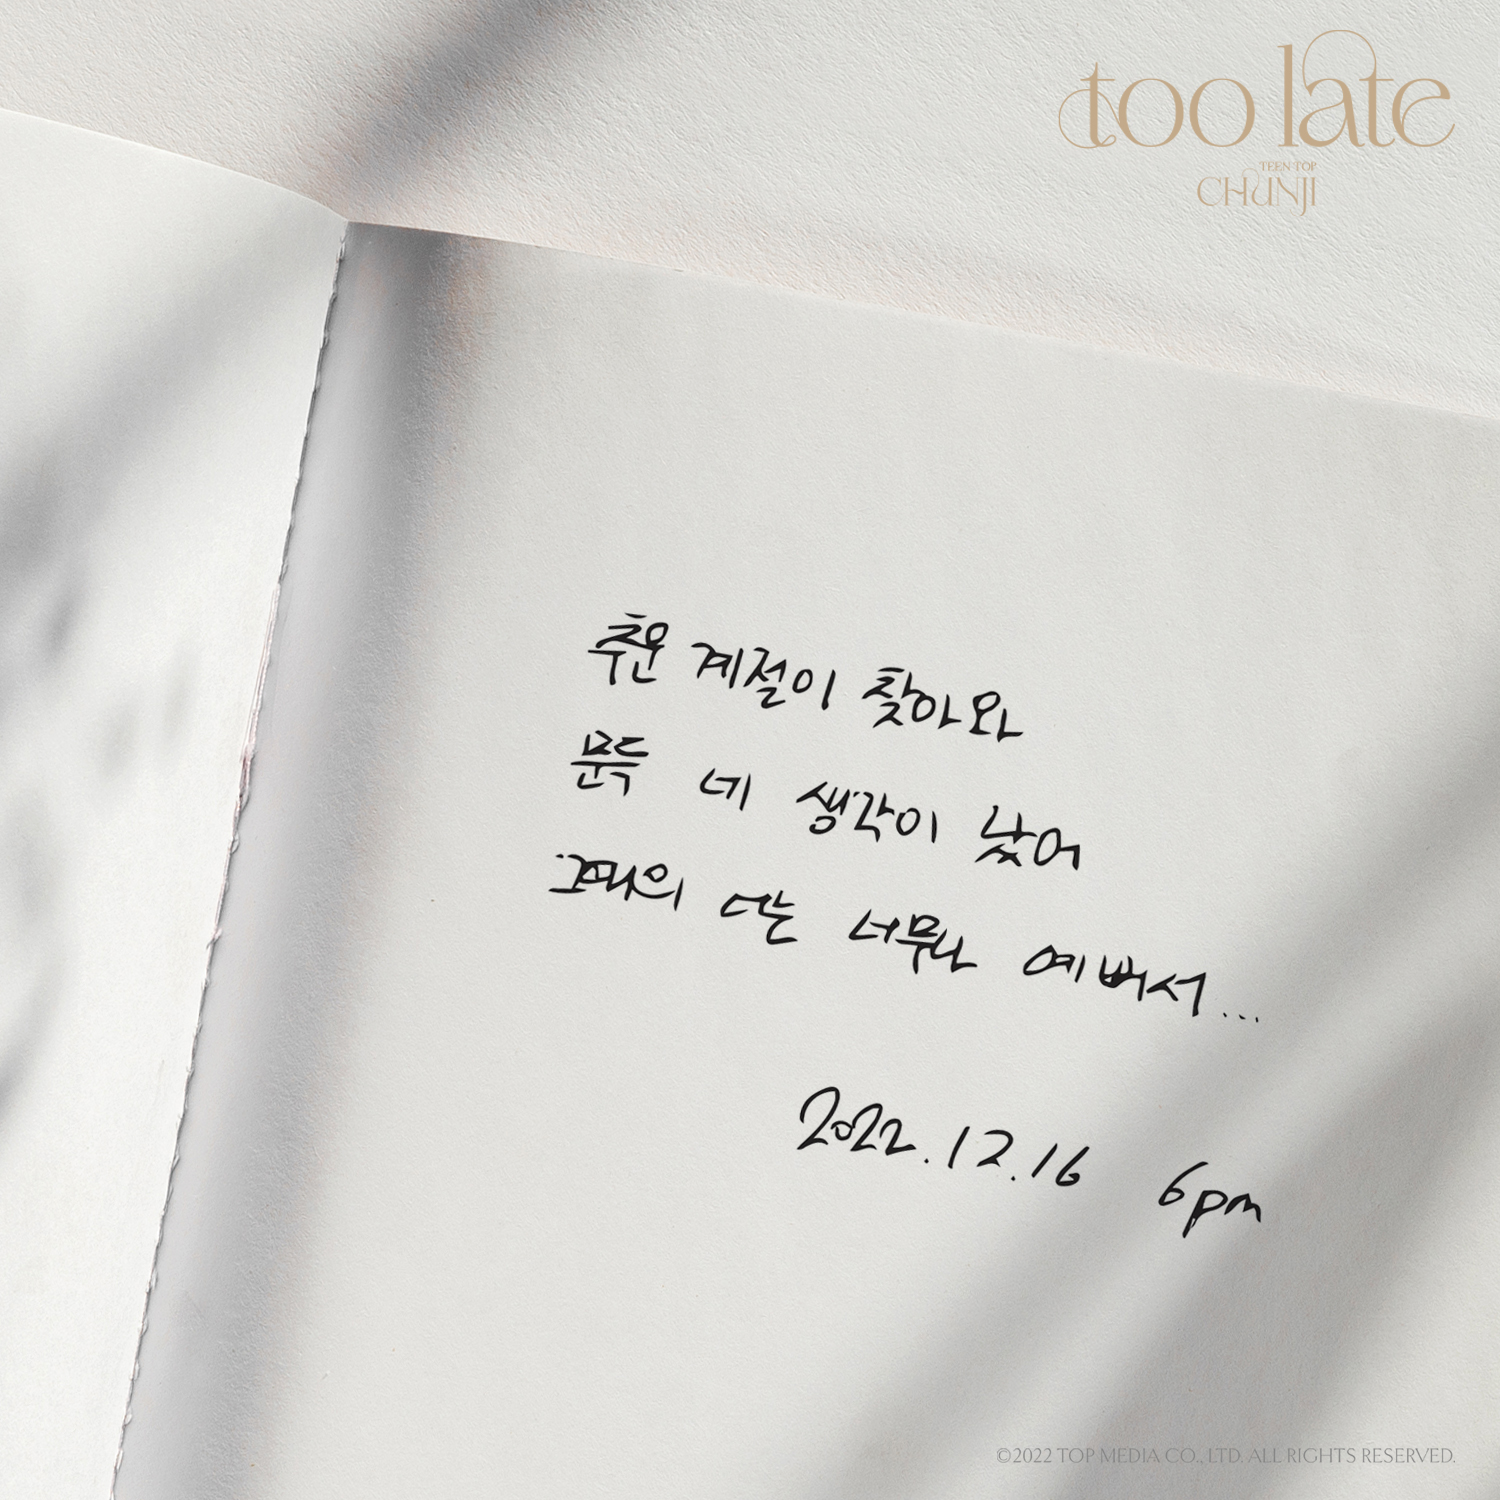 too late
TEEN TOP
CHUNJI
추운 계절이 찾아와
문득 네 생각이 났어
그때의 너는 너무나 예뻐서...
2022.12.16 6pm
©2022 TOP MEDIA CO., LTD. ALL RIGHTS RESERVED.